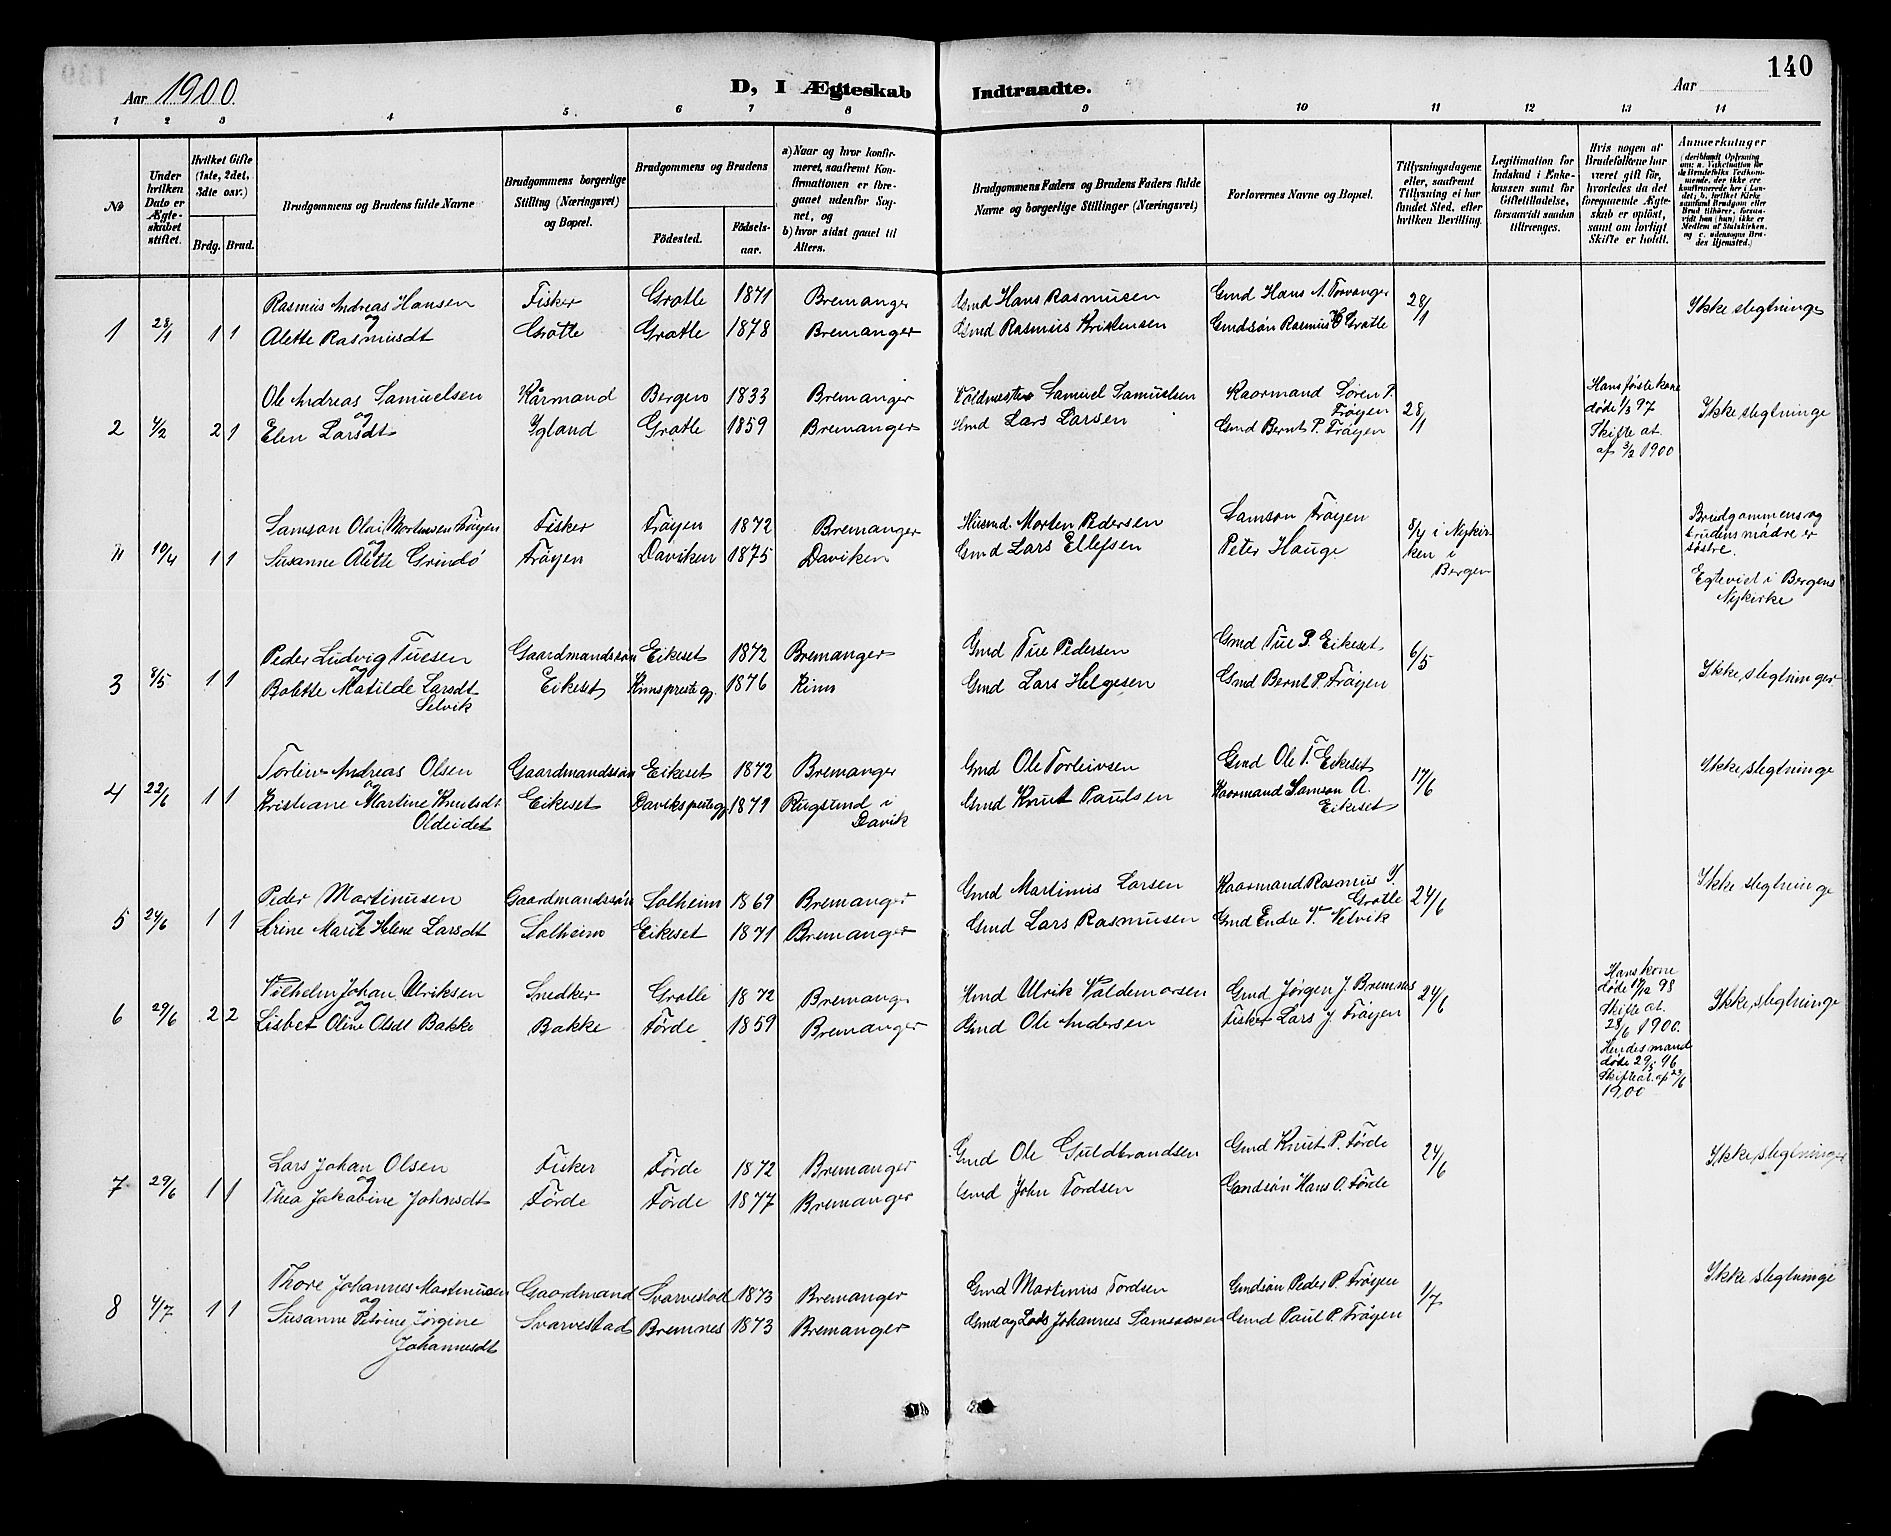 140
Aar 1900.
D, I Ægteskab Indtraadte.
Aar
1 2 3 4 5 6 7 8 9 10 11 12 13 14
No
Under hvilken Dato er Ægteskabet stiftet.
Hvilket Gifte (1ste, 2det, 3die osv.)
Brdg. Brud.
Brudgommens og Brudens fulde Navne
Brudgommens borgerlige Stilling (Næringsvei) og Bopæl.
Brudgommens og Brudens
Födested.
Födselsaar.
a) Naar og hvor konfirmeret, saafremt Konfirmationen er foregaaet udenfor Sognet, og
b) hvor sidst gaaet til Alters.
Brudgommens Faders og Brudens Faders fulde Navne og borgerlige Stillinger (Næringsvei)
Forlovernes Navne og Bopæl.
Tillysningsdagene eller, saafremt Tillysning ei har fundet Sted, efter hvilken Bevilling.
Legitimation for Indskud i Enkekassen samt for Giftetilladelse, forsaavidt saadan tiltrænges.
Hvis nogen af Brudefolkene har været gift før, hvorledes da det foregaaende Ægteskab er opløst, samt om lovligt Skifte er holdt.
Anmerkninger (deriblandt Oplysning om: a. Vakcination for de Brudefolks Vedkommende, der ikke er konfirmerede her i Landet; b. hvilket Kirkesamfund Brudgom eller Brud tilhører, forsaavidt han (hun) ikke er Medlem af Statskirken, og c. udensogns Brudes Hjemsted.)
Rasmus Andreas Hansen Fisker Grotle 1871 Bremanger Gmd Hans Rasmusen Gmd Hans N. Torvanger 28/1 Ikke slegtninge
1 28/1 1 1 og
Alette Rasmusdt Grotle Grotle 1878 Bremanger Gmd Rasmus Kristensen Gmdsøn Rasmus Grotle
Ole Andreas Samuelsen Kårmand Bergen 1833 Bremanger Samuel Samuelsen Kaarmand Søren P. Frøyen 28/1 Hans første kone døde 1/3 97 Ikke slegtninge
2 4/2 2 1 og
Elen Larsdt Igland Grotle 1859 Bremanger Hmd Lars Larsen Gmd Bernt P. Frøyen Skifte at. af 3/2 1900
Samson Olai Mortensen Frøyen Fisker Frøyen 1872 Bremanger Husmd. Morten Pedersen Samson Frøyen 8/4 i Nykirken i Bergen Brudgommens og brudens mødre er søstre.
" 10/4 1 1 og
Susanne Alette Grindö Frøyen Daviken 1875 Daviken Gmd Lars Ellefsen Peter Hauge Egteviet i Bergens Nykirke
Peder Ludvig Tuesen Gaardmandssøn Eikeset 1872 Bremanger Gmd Tue Pedersen Gmd Tue P. Eikeset 6/5 Ikke slegtninger
3 8/5 1 1 og
Bolette Matilde Larsdt Selvik Eikeset Kinns prestegj 1876 Kinn Gmd Lars Helgesen Gmd Bernt P. Frøyen
Torleiv Andreas Olsen Gaardmandssøn Eikeset 1872 Bremanger Gmd Ole Torleivsen Gmd Ole T. Eikeset 17/6 Ikke slegtninge
4 22/6 1 1 og
Kristiane Martine Knutsdt Oldeidet Eikeset Daviks prestegj 1871 Rugsund i Davik Gmd Knut Paulsen Kaarmand Samson A. Eikeset
Peder Martinusen Gaardmandssøn Solheim 1869 Bremanger Gmd Martinus Larsen Kaarmand Rasmus J. Grotle 24/6 Ikke slegtninge
5 24/6 1 1 og
Marie Helene Larsdt Solheim Eikeset 1871 Bremanger Gmd Lars Rasmusen Gmd Endre Vetvik
Vilhelm Johan Ulriksen Snedker Grotle 1872 Bremanger Hmd Ulrik Valdemarsen Gmd Jørgen J. Bremnes 24/6 Hans kone døde 19/12 98 Skifte at. 28/6 1900. Ikke slegtninge
6 29/6 2 2 og
Lisbet Oline Olsdt Bakke Bakke Førde 1859 Bremanger Gmd Ole Andersen Fisker Lars J. Frøyen Hendes mand døde 29/5 96 Skifteat. af 28/6 1900
Lars Johan Olsen Fisker Førde 1872 Bremanger Gmd Ole Guldbrandsen Gmd Knut P. Førde 24/6 Ikke slegtninge
7 29/6 1 1 og
Thea Jakobine Johnsdt Førde Førde 1877 Bremanger Gmd John Tordsen Gmdsøn Hans O. Førde
Thore Johannes Martinusen Gaardmand Svarvestad 1873 Bremanger Gmd Martinus Tordsen Gmdsøn Peder P. Frøyen 1/7 Ikke slegtninge
8 4/7 1 1 og
Susanne Petrine Jørgine Johannesdt Svarvestad Bremnes 1873 Bremanger Gmd og Lods Johannes Samsonsen Gmd Paul P. Frøyen